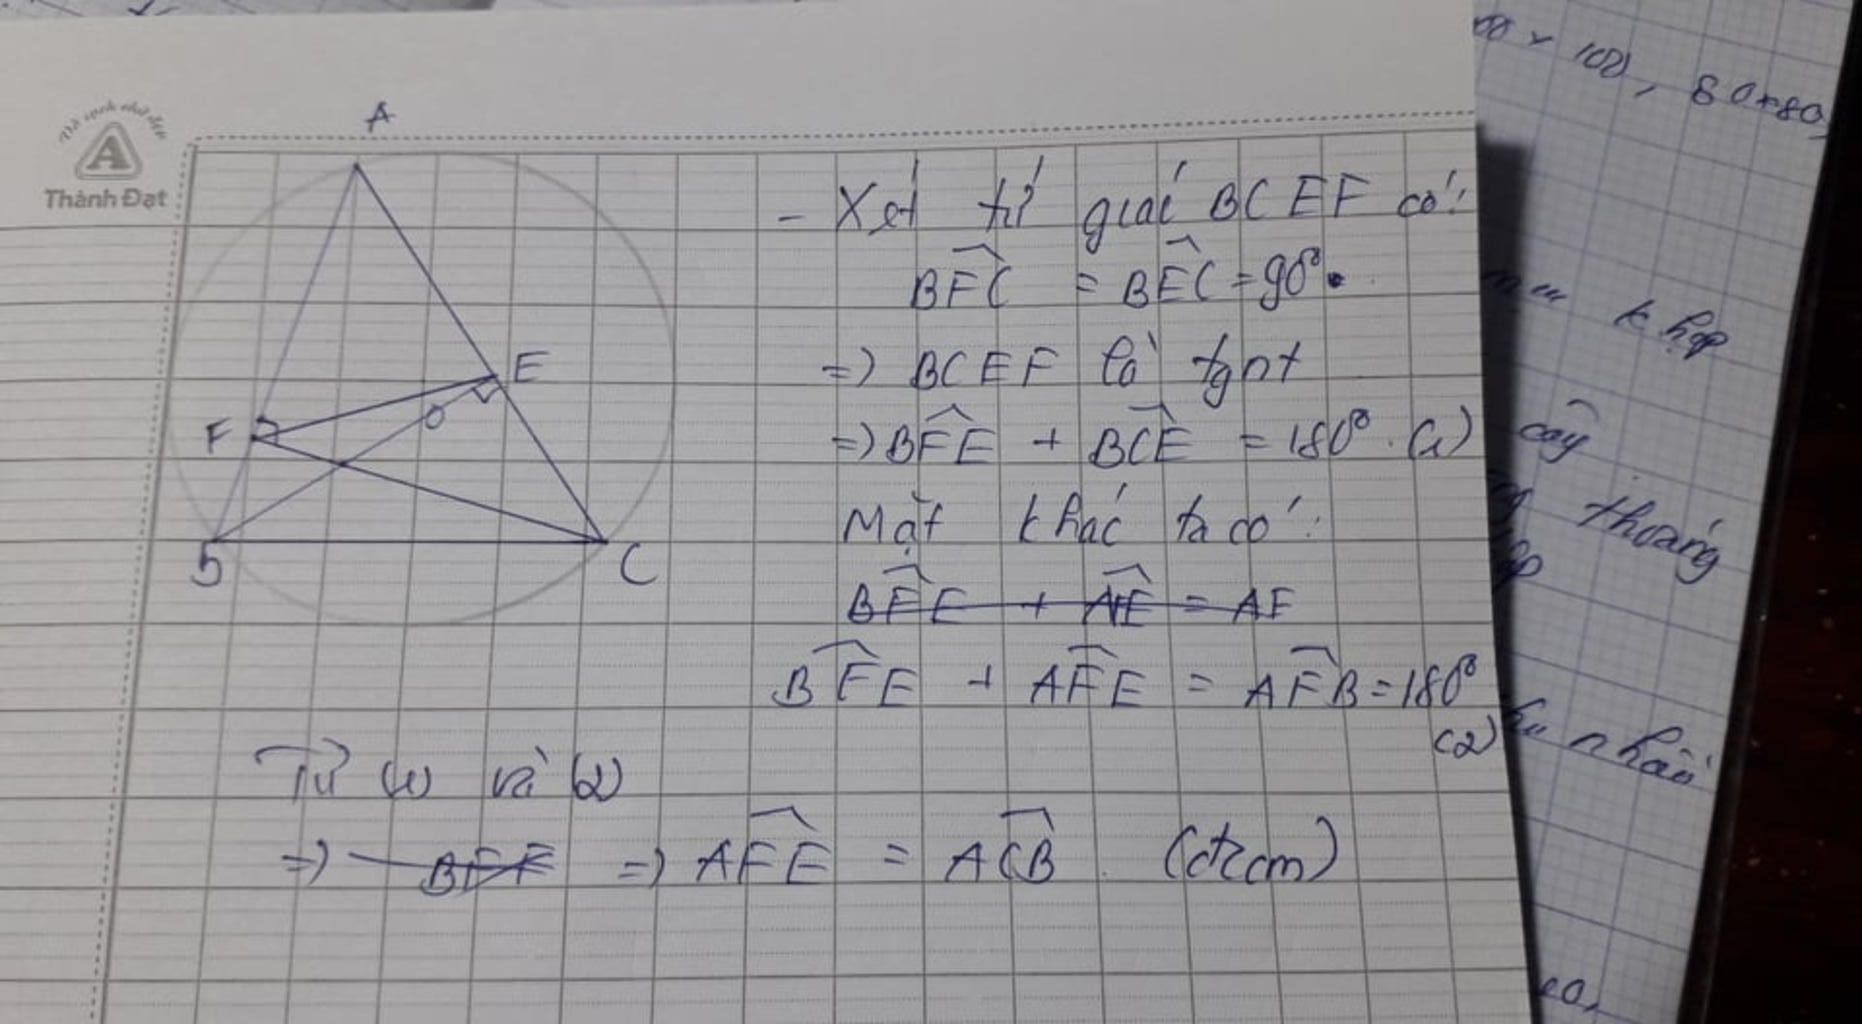 Thành Đạt
A
E
F
O
B
C
- Xét tứ giác BCEF có:
BFC = BEC = 90°.
=) BCEF là tgnt
=) BFE + BCE = 180°. (1)
Mặt khác ta có:
BFE + AFE = AF
BFE + AFE = AFB = 180°
(2)
Từ (1) và (2)
=) BFE =) AFE = ACB. (đpcm)
100 x 100, 80x80,
k hợp
cây
thoáng